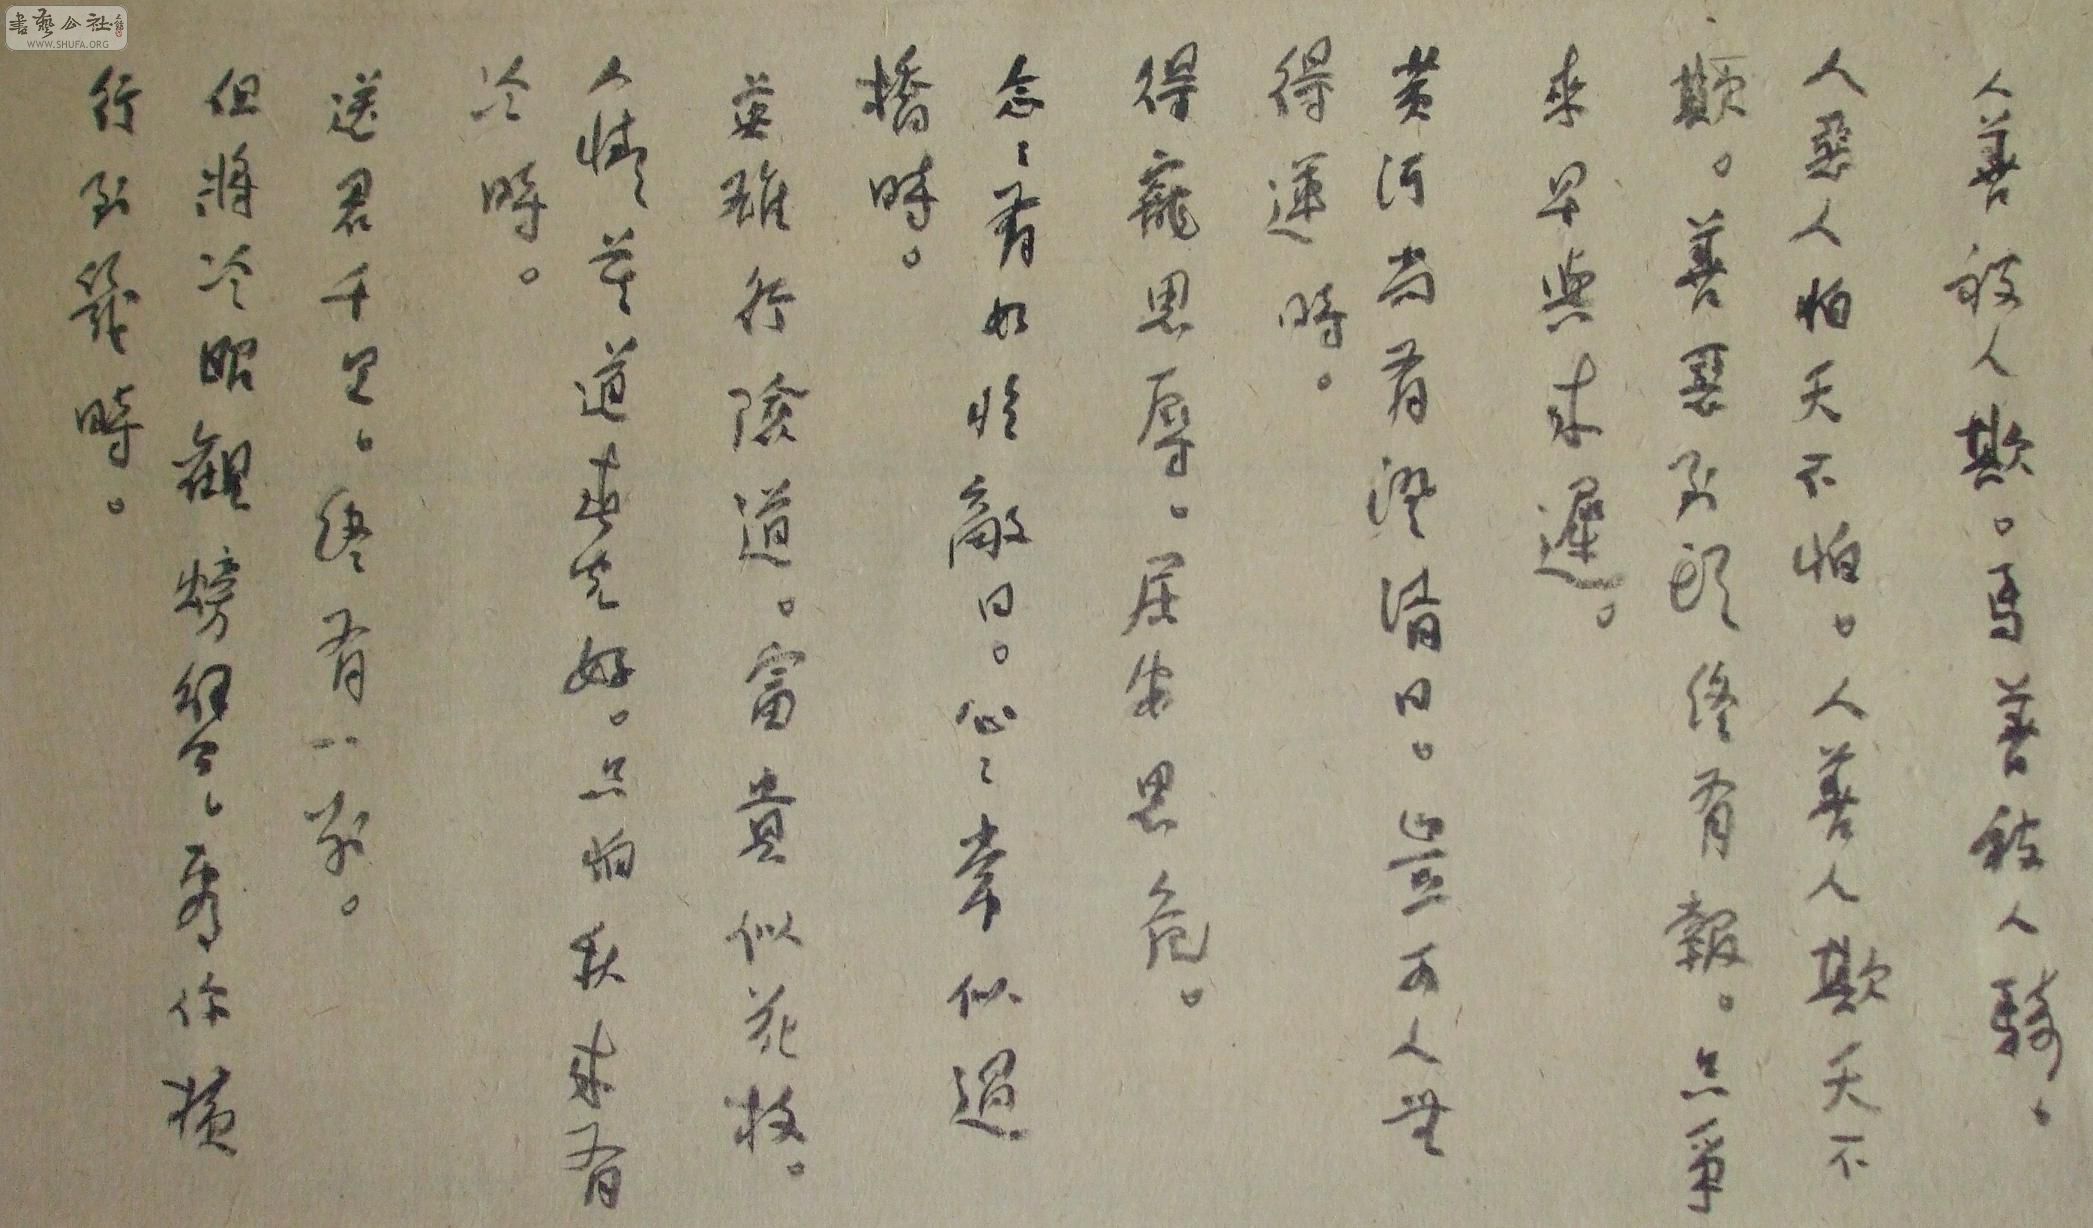 人善被人欺。馬善被人騎。
人惡人怕天不怕。人善人欺天不
欺。善惡到頭終有報。只爭
來早與來遲。
黃河尚有澄清日。豈可人無
得運時。
得寵思辱。居安思危。
念〻有如臨敵日。心〻常似過
橋時。
英雄行險道。富貴似花枝。
人情莫道春光好。只怕秋來有
冷時。
送君千里。終有一別。
但將冷眼觀螃蟹、看你橫
行到幾時。
書藝公社
WWW.SHUFA.ORG